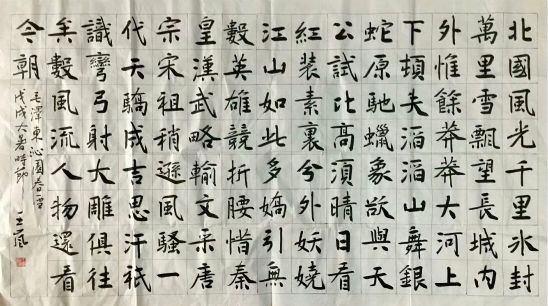 北國風光千里氷封
萬里雪飄望長城内
外惟餘莽莽大河上
下頓失滔滔山舞銀
蛇原馳蠟象欲與天
公試比高須晴日看
紅装素裹兮外妖嬈
江山如此多嬌引無
數英雄競折腰惜秦
皇漢武略輸文采唐
宗宋祖稍遜風騷一
代天驕成吉思汗衹
識彎弓射大雕俱往
矣數風流人物還看
今朝
毛澤東沁園春雪
戊戌大暑時節